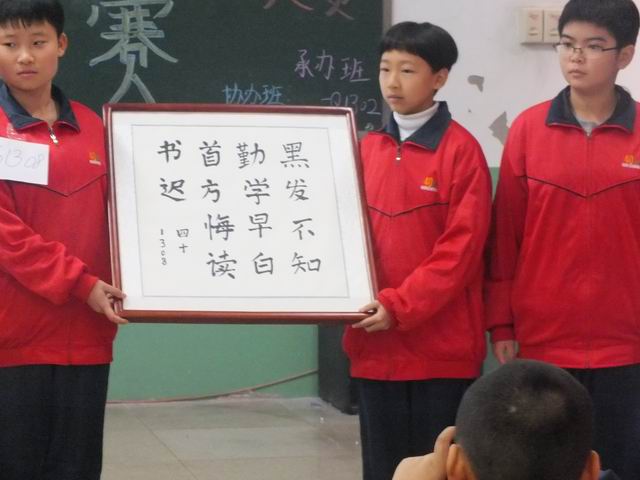 赛
承办班
协办班
黑发不知
勤学早白
首方悔读
书迟
四十
1308